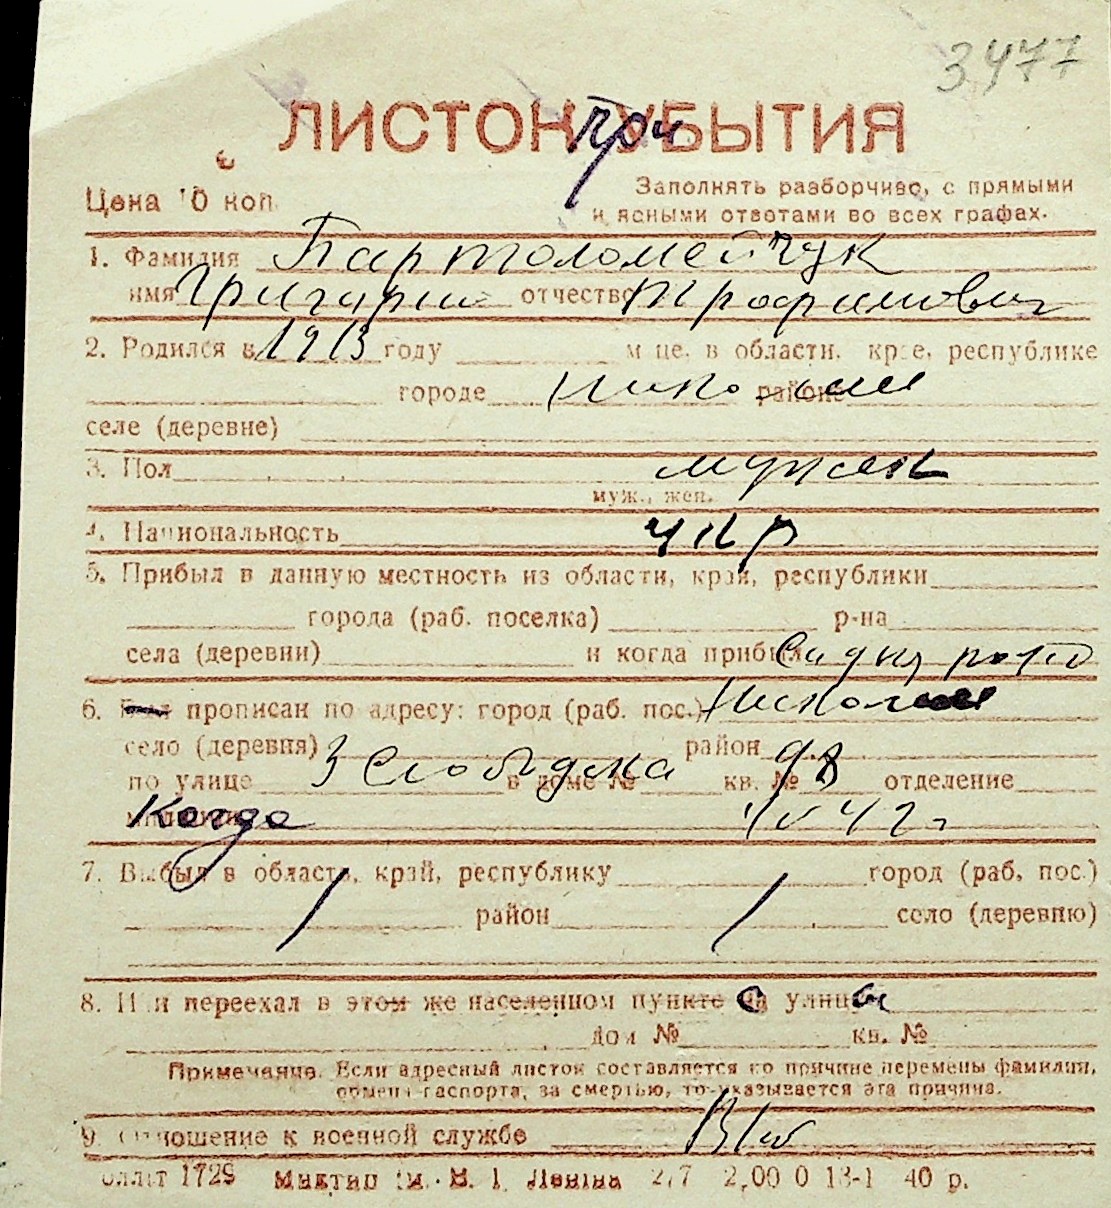 3477
ЛИСТОК УБЫТИЯ
Цена 10 коп.
Заполнять разборчиво, с прямыми
и ясными ответами во всех графах.
1. Фамилия Бартоломейчук
имя Григорий отчество Трофимович
2. Родился в 1913 году м-це, в области, крае, республике
городе районе
селе (деревне)
3. Пол
муж., жен.
4. Национальность укр
5. Прибыл в данную местность из области, край, республики
города (раб. поселка) р-на
села (деревни) и когда прибыл
6. прописан по адресу: город (раб. пос.)
село (деревня) район
по улице 3 Слободска в доме № кв. № 98 отделение
Когда 42 г
7. Выбыл в область, край, республику город (раб, пос.)
район село (деревню)
8. Или переехал в этом же населенном пункте с улицы
дом № кв. №
Примечание. Если адресный листок составляется по причине перемены фамилии,
обмена паспорта, за смертью, то указывается эта причина.
9. Отношение к военной службе
1729 ім. В. І. Леніна 2,7 2,00 0 13-1 40 р.